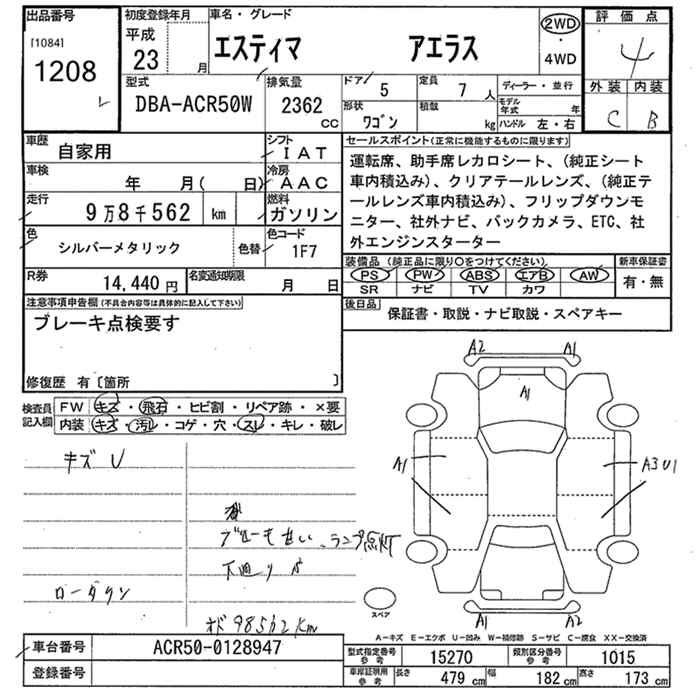 出品番号
[1084]
1208
初度登録年月
平成
23 月
車名・グレード
エスティマ アエラス
2WD
・
4WD
評価点
4
外装 内装
C B
型式
DBA-ACR50W
排気量
2362
cc
ドア
5
定員
7 人
形状
ワゴン
積載
kg
ディーラー・並行
モデル
年式 年
ハンドル 左・右
車歴
自家用
シフト
IAT
車検
年 月( 日)
冷房
AAC
走行
9万8千562 km
燃料
ガソリン
色
シルバーメタリック
色替
色コード
1F7
R券
14,440 円
名変通知期限
月 日
セールスポイント(正常に機能するものに限ります)
運転席、助手席レカロシート、(純正シート
車内積込み)、クリアテールレンズ、(純正テ
ールレンズ車内積込み)、フリップダウンモ
ニター、社外ナビ、バックカメラ、ETC、社
外エンジンスターター
装備品(純正品に限り○をつけてください)
PS PW ABS エアB AW
SR ナビ TV カワ
新車保証書
有・無
後日品
保証書・取説・ナビ取説・スペアキー
注意事項申告欄(不具合内容等は具体的に記入して下さい)
ブレーキ点検要す
修復歴 有〔箇所 〕
検査員
記入欄
FW キズ・飛石・ヒビ割・リペア跡・×要
内装 キズ・汚レ・コゲ・穴・スレ・キレ・破レ
キズ U
ランプ点灯
下廻り
ローダウン
オド 98562km
A2 A1
A1
A1
A3 U1
A1 A2
スペア
A-キズ E-エクボ U-凹み W-補修跡 S-サビ C-腐食 XX-交換済
車台番号
ACR50-0128947
登録番号
型式指定番号
参考
15270
類別区分番号
参考
1015
車庫証明用
参考
長さ
479 cm
幅
182 cm
高さ
173 cm